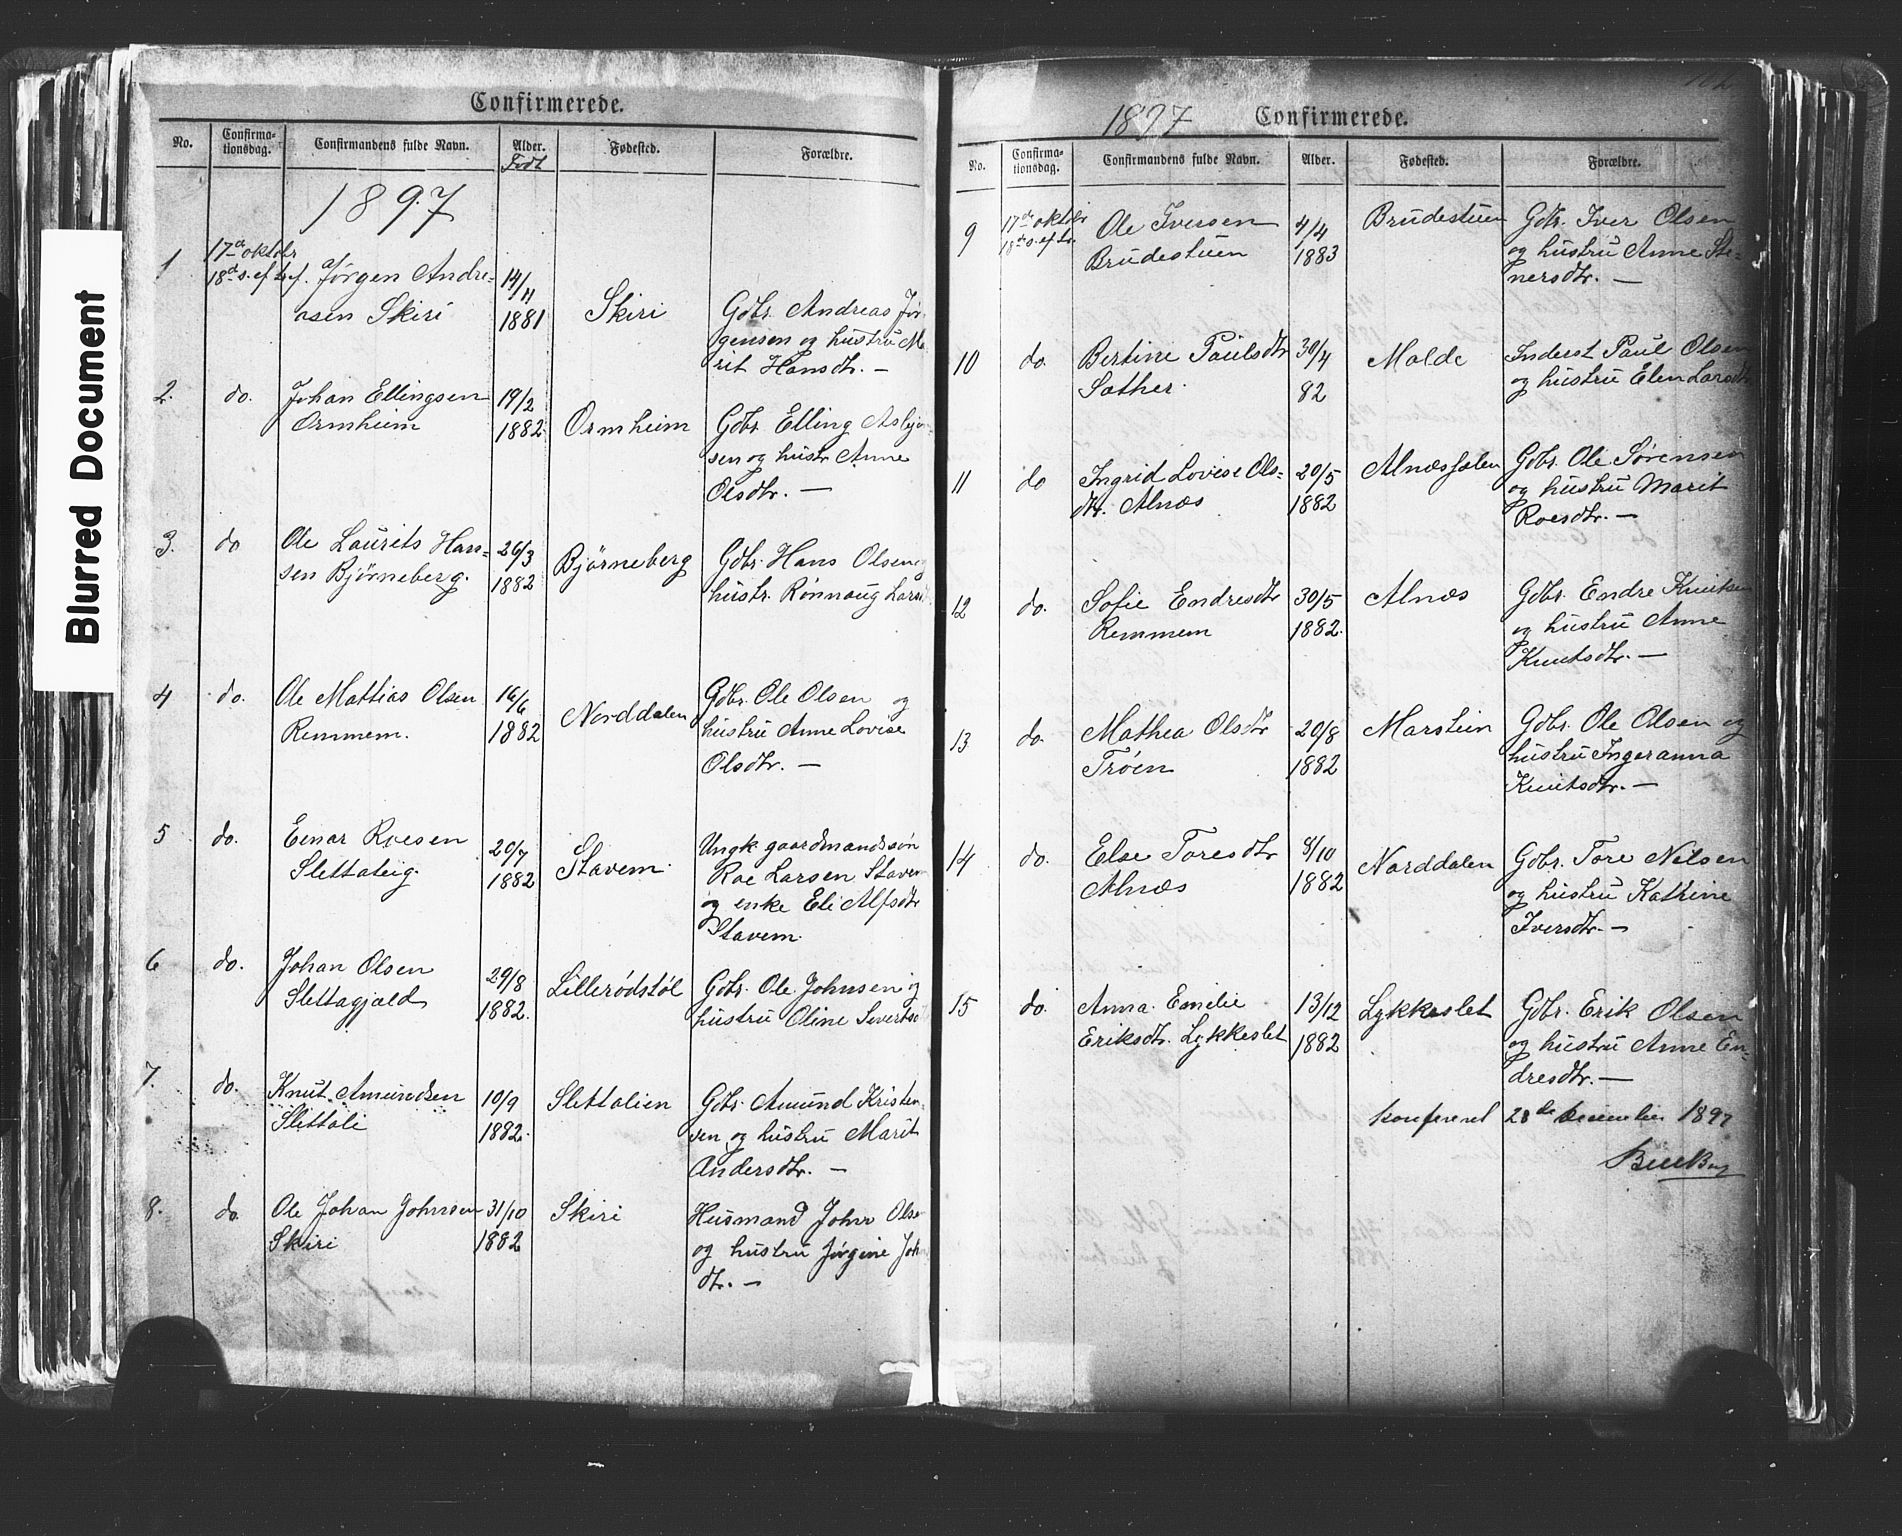 Blurred Document
Confirmerede.
No. Confirma-tionsdag. Confirmandens fulde Navn. Alder. Født Fødested. Forældre.
1897
1 17de oktobr
18de s. ef. tref. Jørgen Andre-
asen Skiri 14/11 1881 Skiri Gdbr. Andreas Jør-
gensen og hustru Ma
rit Hansdtr. —
2. do. Johan Ellingsen 19/2
Ormheim 1882 Ormheim Gdbr. Elling Asbjørn
sen og hustr Anne
Olsdtr. —
3. do Ole Laurits Han- 26/3
sen Bjørneberg. 1882 Bjørneberg Gdbr. Hans Olsen og
hustr. Rønnaug Larsdt
4 do. Ole Mattias Olsen 16/6
Remmem. 1882 Norddalen Gdbr. Ole Olsen og
hustru Anne Lovise
Olsdtr. —
5 do. Einar Roesen 20/7
Slettateig. 1882 Stavem. Ungk gaardmandssøn
Roe Larsen Stavem
og enke Eli Alfsdtr
Stavem.
6 do. Johan Olsen 29/8
Slettagjæld 1882. Lillerødstøl Gdbr. Ole Johnsen og
hustru Oline Sivertsd
7. do. Knut Amundsen 10/9
Slettali 1882. Slettalien Gdbr. Amund Kristen-
sen og hustru Marit
Andersdtr. —
8. do. Ole Johan Johnsen 31/10
Skiri 1882 Skiri Husmand John Olsen
og hustru Jørgine Joh
dtr. —
1897 Confirmerede.
No. Confirma-tionsdag. Confirmandens fulde Navn. Alder. Fødested. Forældre.
9 17de oktobr
18de s. ef. tr. Ole Iversen 4/4
Brudestuen 1883 Brudestuen Gdbr. Iver Olsen
og hustru Anne Ste-
nersdtr. —
10 do. Bertine Paulsdtr 30/4
Sæther. 82 Molde Inderst Paul Olsen
og hustru Elen Larsdtr
11 do Ingrid Lovise Ols- 20/5
dtr. Alnæs 1882 Alnæssælen Gdbr. Ole Sørensen
og hustru Marit
Roesdtr. —
12 do. Sofie Endresdtr 30/5
Remmem 1882. Alnæs Gdbr. Endre Knutsen
og hustru Anne
Knutsdtr. —
13 do. Mathea Olsdtr 20/8
Trøen 1882 Marstein Gdbr. Ole Olsen og
hustru Ingeranna
Knutsdtr. —
14 do. Else Toresdtr 8/10
Alnæs 1882 Norddalen Gdbr. Tore Nilsen
og hustru Kathrine
Iversdtr. —
15 do. Anna Emilie 13/12
Eriksdtr. Lykkeslet 1882 Lykkeslet Gdbr. Erik Olsen
og hustru Anne En-
dresdtr. —
Konfereret 28de december 1897